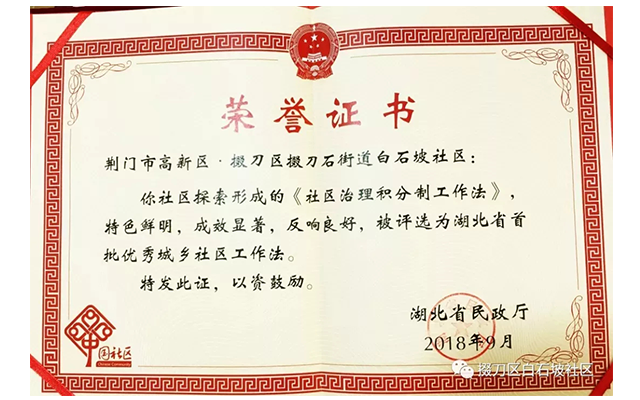 荣誉证书
荆门市高新区·掇刀区掇刀石街道白石坡社区：
你社区探索形成的《社区治理积分制工作法》，
特色鲜明，成效显著，反响良好，被评选为湖北省首
批优秀城乡社区工作法。
特发此证，以资鼓励。
湖北省民政厅
2018年9月
中国社区
掇刀区白石坡社区